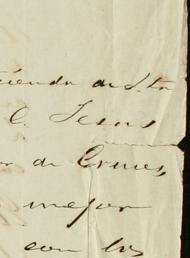 de Sta
C. Jesus
de Cruces,
mejor
con los